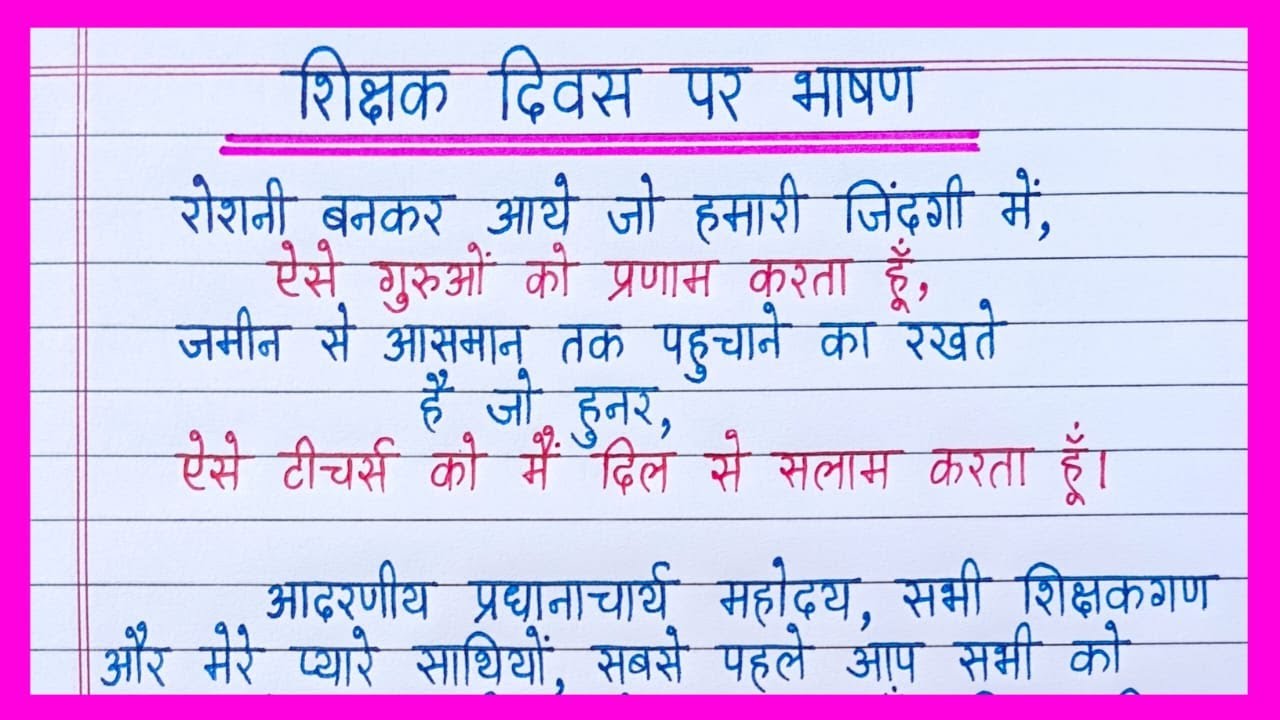 शिक्षक दिवस पर भाषण
रोशनी बनकर आये जो हमारी जिंदगी में,
ऐसे गुरुओं को प्रणाम करता हूँ,
जमीन से आसमान तक पहुचाने का रखते
है जो हुनर,
ऐसे टीचर्स को मैं दिल से सलाम करता हूँ।
आदरणीय प्रधानाचार्य महोदय, सभी शिक्षकगण
और मेरे प्यारे साथियों, सबसे पहले आप सभी को